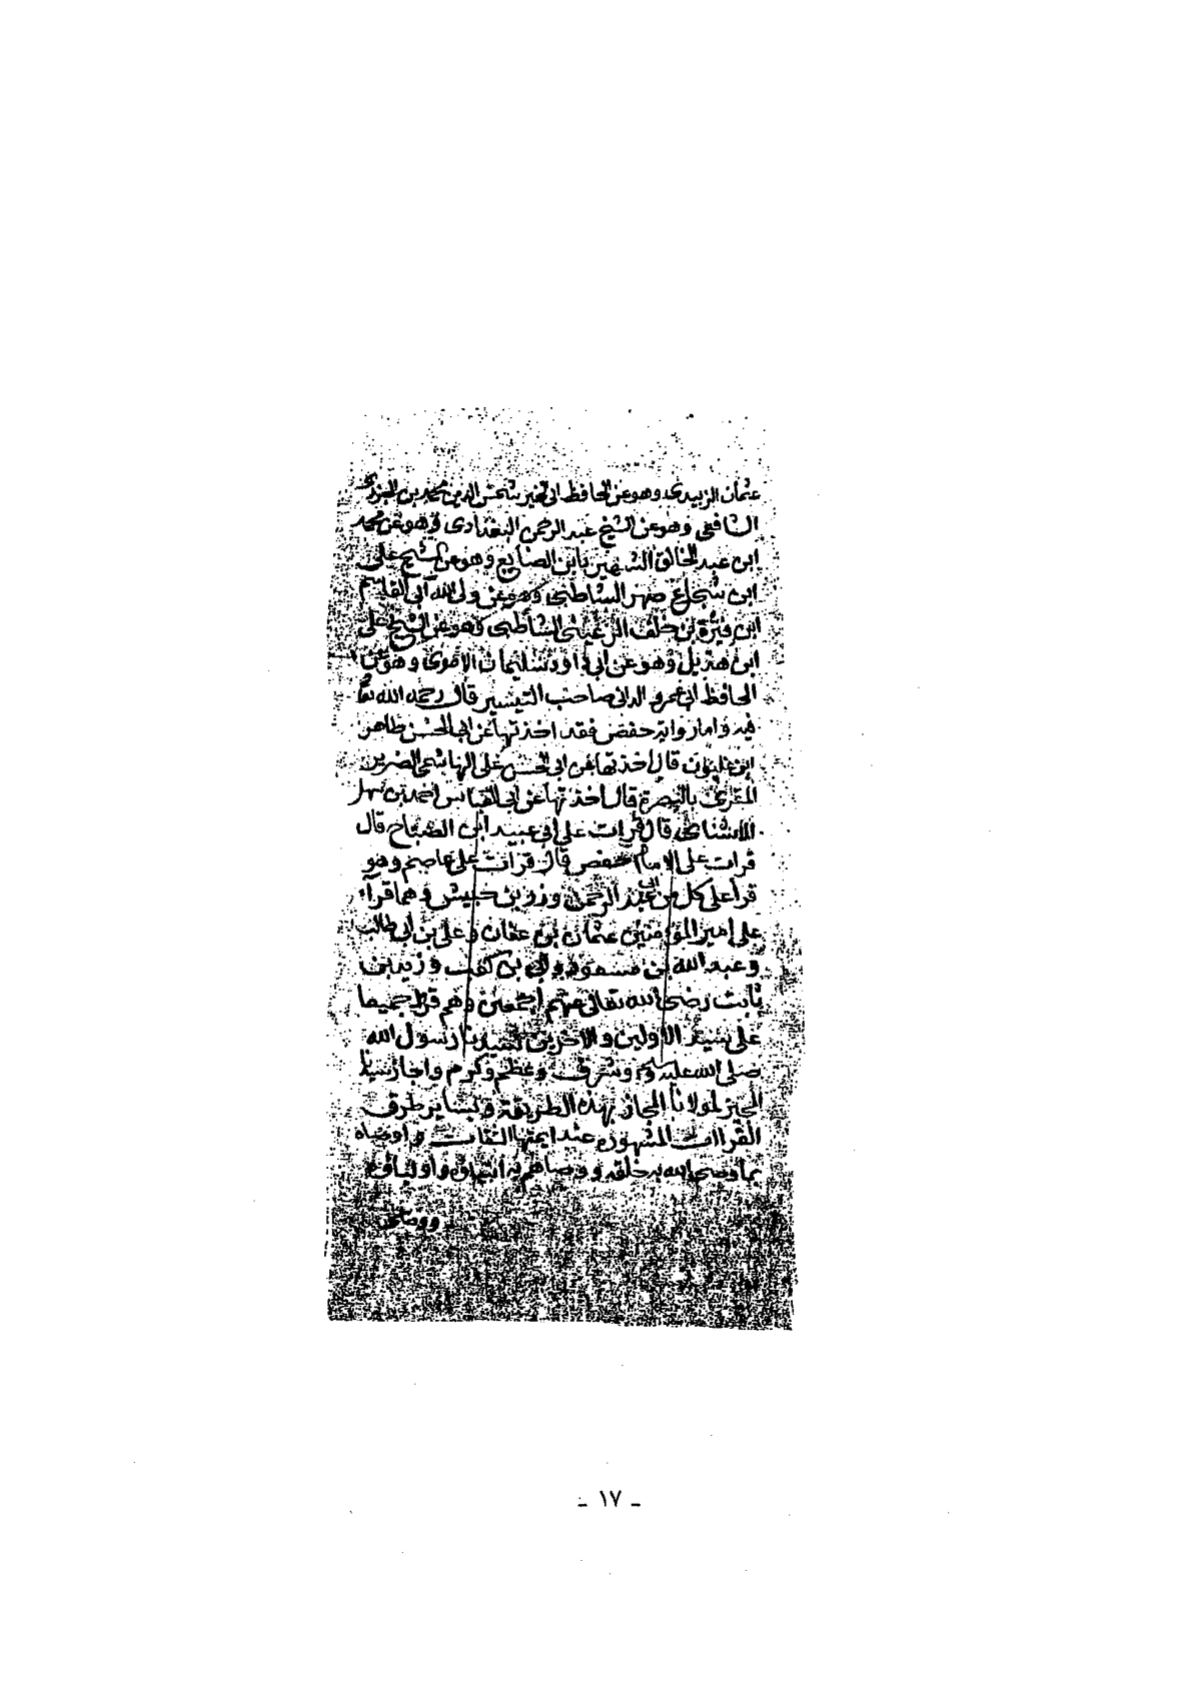 عثمان الزبيدي وهو عن الحافظ ابى الخير شمس الدين محمد بن الجزرى
الشافعى وهو عن الشيخ عبد الرحمن البغدادى وهو عن محمد
ابن عبد الخالق الشهير بابن الصايغ وهو عن الشيخ على
ابن شجاع صهر الشاطبى وهو عن ولى الله ابى القاسم
ابن فيرة بن خلف الرعينى الشاطبى وهو عن الشيخ على
ابن هذيل وهو عن ابى داود سليمان الاموى وهو عن
الحافظ ابى عمرو الدانى صاحب التيسير قال رحمه الله تعا
فيه واما رواية حفص فقد اخذتها عن ابى الحسن طاهر
ابن غلبون قال اخذتها عن ابى الحسن على الهاشمى الضرير
المقرى بالبصرة قال اخذتها عن ابى العباس احمد بن سهل
الاشنانى قال قرات على ابى عبيد ابن الصباح قال
قرات على الامام حفص قال قرات على عاصم وهو
قرا على كل من ابى عبد الرحمن وزر بن حبيش وهما قرآء
على امير المؤمنين عثمان بن عفان وعلى بن ابى طالب
وعبد الله بن مسعود وابى بن كعب وزيد بن
ثابت رضى الله تعالى عنهم اجمعين وهم قرؤا جميعا
على سيد الاولين والاخرين سيدنا رسول الله
صلى الله عليه وسلم وشرف وعظم وكرم واجاز سيدنا
المجيز لمولانا المجاز بهذه الطريقة وبساير طرق
القراات المشهورة عند ايمتها الثقات واوصاه
بما وصى الله به خلقه ووصاهم به انبياؤه واولياؤه
ـ ١٧ ـ